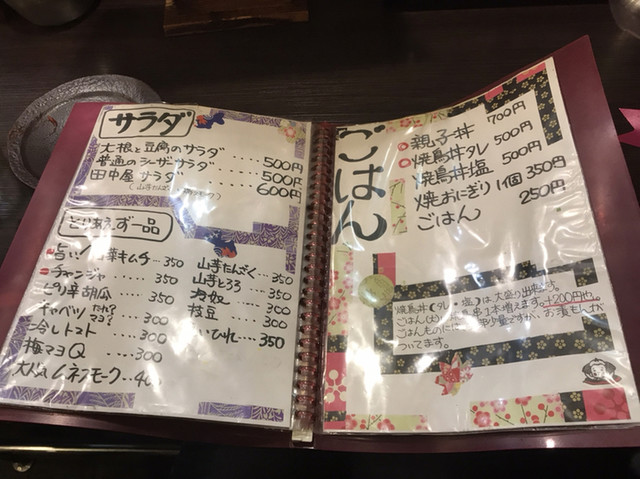 サラダ
大根と豆腐のサラダ ････ 500円
普通のシーザーサラダ ･････ 500円
田中屋サラダ ･････ 600円
とりあえず一品
旨い! キムチ ･･･ 350
チャンジャ ････ 350
ピリ辛胡瓜 ････ 350
キャベツ ････ 300
トマト ････ 300
梅マヨQ ････ 300
ムネスモーク ･･･ 400
山芋たんざく ･･･ 350
山芋とろろ ････ 350
冷奴 ････ 300
枝豆 ････ 300
いひれ ････ 350
ごはん
親子丼 700円
焼鳥丼タレ 500円
焼鳥丼塩 500円
焼おにぎり 1個 350円
ごはん 250円
焼鳥丼(タレ・塩)は大盛り出来ます。
ごはん 串1本増えます。+200円也。
ごはんものには 少量ですが、お漬もんが
ついてます。